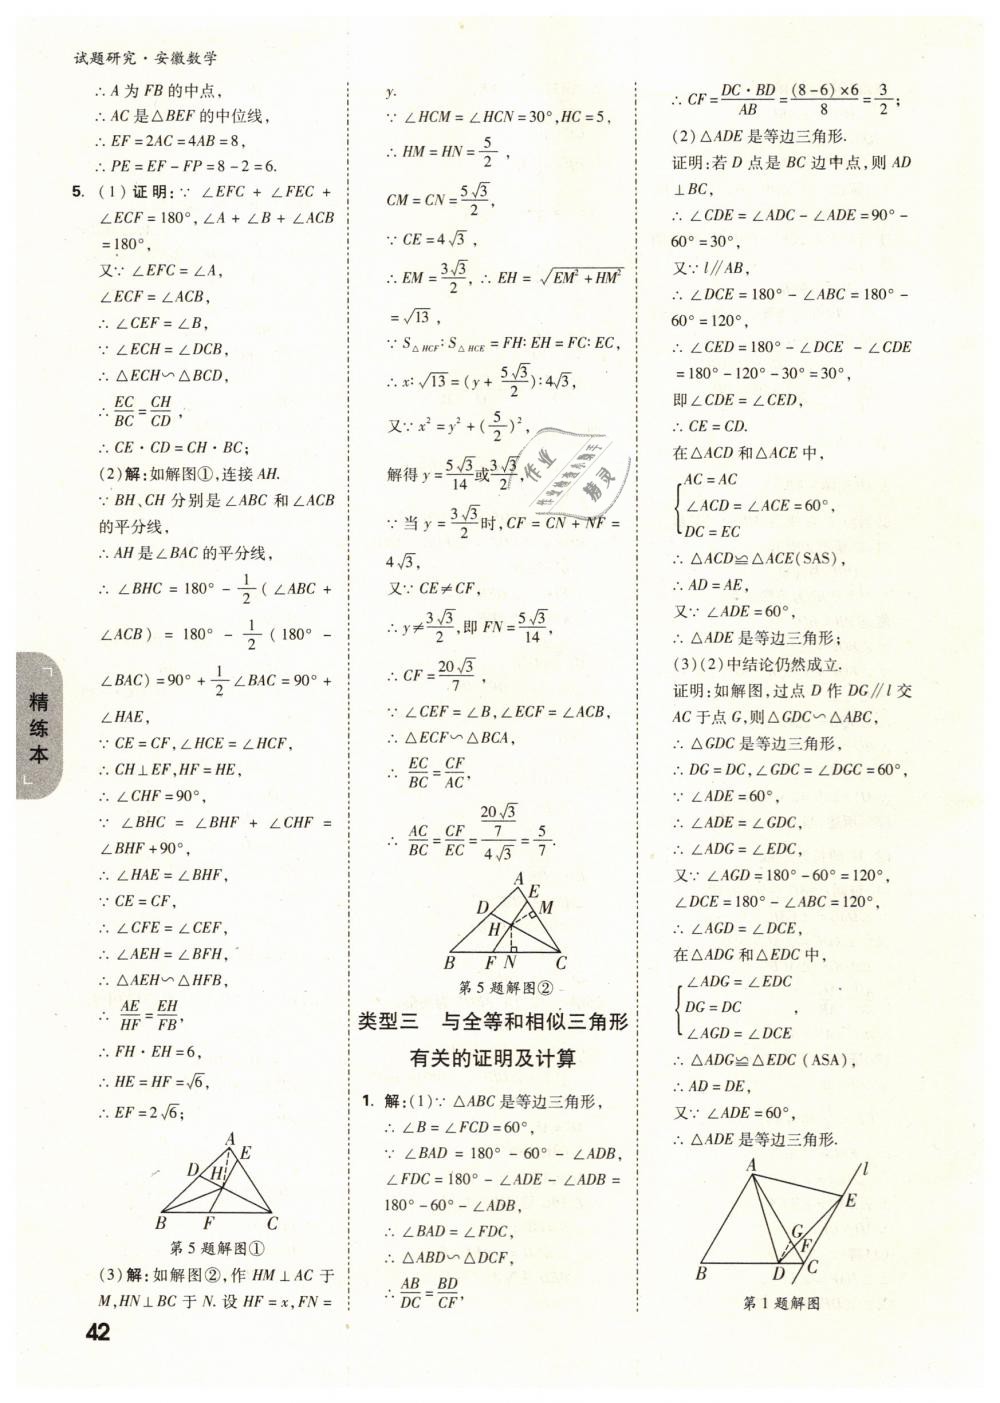 试题研究·安徽数学
∴A为FB的中点,
∴AC是△BEF的中位线,
∴EF=2AC=4AB=8,
∴PE=EF-FP=8-2=6.
5. (1)证明:∵∠EFC+∠FEC+
∠ECF=180°,∠A+∠B+∠ACB
=180°,
又∵∠EFC=∠A,
∠ECF=∠ACB,
∴∠CEF=∠B,
∵∠ECH=∠DCB,
∴△ECH∽△BCD,
∴EC/BC=CH/CD,
∴CE·CD=CH·BC;
(2)解:如解图①,连接AH.
∵BH、CH分别是∠ABC和∠ACB
的平分线,
∴AH是∠BAC的平分线,
∴∠BHC=180°-1/2(∠ABC+
∠ACB)=180°-1/2(180°-
∠BAC)=90°+1/2∠BAC=90°+
∠HAE,
∵CE=CF,∠HCE=∠HCF,
∴CH⊥EF,HF=HE,
∴∠CHF=90°,
∵∠BHC=∠BHF+∠CHF=
∠BHF+90°,
∴∠HAE=∠BHF,
∵CE=CF,
∴∠CFE=∠CEF,
∴∠AEH=∠BFH,
∴△AEH∽△HFB,
∴AE/HF=EH/FB,
∴FH·EH=6,
∴HE=HF=√6,
∴EF=2√6;
A
D H E
B F C
第5题解图①
(3)解:如解图②,作HM⊥AC于
M,HN⊥BC于N.设HF=x,FN=
y.
∵∠HCM=∠HCN=30°,HC=5,
∴HM=HN=5/2,
CM=CN=5√3/2,
∵CE=4√3,
∴EM=3√3/2,∴EH=√(EM²+HM²)
=√13,
∵S△HCF∶S△HCE=FH∶EH=FC∶EC,
∴x∶√13=(y+5√3/2)∶4√3,
又∵x²=y²+(5/2)²,
解得y=5√3/14或3√3/2,
∵当y=3√3/2时,CF=CN+NF=
4√3,
又∵CE≠CF,
∴y≠3√3/2,即FN=5√3/14,
∴CF=20√3/7,
∵∠CEF=∠B,∠ECF=∠ACB,
∴△ECF∽△BCA,
∴EC/BC=CF/AC,
∴AC/BC=CF/EC=(20√3/7)/(4√3)=5/7.
A
E
D M
H
B F N C
第5题解图②
类型三 与全等和相似三角形
有关的证明及计算
1. 解:(1)∵△ABC是等边三角形,
∴∠B=∠FCD=60°,
∵∠BAD=180°-60°-∠ADB,
∠FDC=180°-∠ADE-∠ADB=
180°-60°-∠ADB,
∴∠BAD=∠FDC,
∴△ABD∽△DCF,
∴AB/DC=BD/CF,
∴CF=DC·BD/AB=(8-6)×6/8=3/2;
(2)△ADE是等边三角形.
证明:若D点是BC边中点,则AD
⊥BC,
∴∠CDE=∠ADC-∠ADE=90°-
60°=30°,
又∵l∥AB,
∴∠DCE=180°-∠ABC=180°-
60°=120°,
∴∠CED=180°-∠DCE-∠CDE
=180°-120°-30°=30°,
即∠CDE=∠CED,
∴CE=CD.
在△ACD和△ACE中,
AC=AC
∠ACD=∠ACE=60°,
DC=EC
∴△ACD≌△ACE(SAS),
∴AD=AE,
又∵∠ADE=60°,
∴△ADE是等边三角形;
(3)(2)中结论仍然成立.
证明:如解图,过点D作DG∥l交
AC于点G,则△GDC∽△ABC,
∴△GDC是等边三角形,
∴DG=DC,∠GDC=∠DGC=60°,
∵∠ADE=60°,
∴∠ADE=∠GDC,
∴∠ADG=∠EDC,
又∵∠AGD=180°-60°=120°,
∠DCE=180°-∠ABC=120°,
∴∠AGD=∠DCE,
在△ADG和△EDC中,
∠ADG=∠EDC
DG=DC ,
∠AGD=∠DCE
∴△ADG≌△EDC(ASA),
∴AD=DE,
又∵∠ADE=60°,
∴△ADE是等边三角形.
A l
E
G F
B D C
第1题解图
精练本
42
作业
精灵